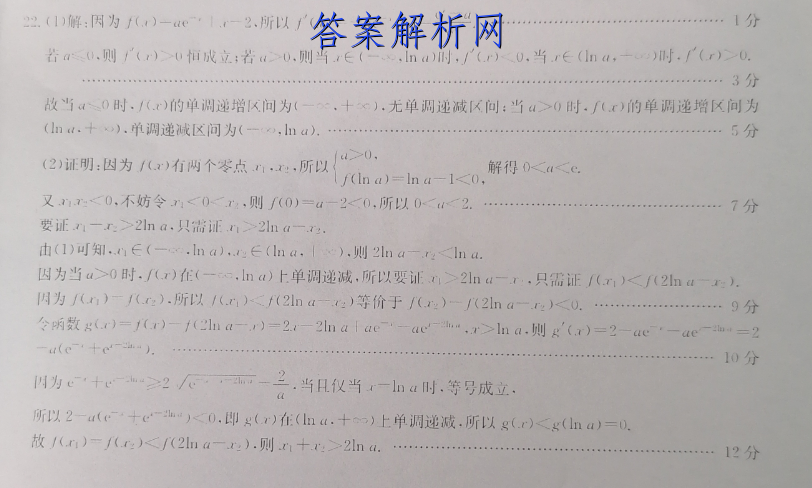 22.(1)解:因为f(x)=ae⁻ˣ+x-2,所以f′
答案解析网
1分
若a≤0,则f′(x)>0恒成立;若a>0,则当x∈(-∞,ln a)时,f′(x)<0,当x∈(ln a,+∞)时,f′(x)>0.
3分
故当a≤0时,f(x)的单调递增区间为(-∞,+∞),无单调递减区间;当a>0时,f(x)的单调递增区间为
(ln a,+∞),单调递减区间为(-∞,ln a). 5分
(2)证明:因为f(x)有两个零点x₁,x₂,所以{a>0,
f(ln a)=ln a-1<0, 解得0<a<e.
又x₁x₂<0,不妨令x₁<0<x₂,则f(0)=a-2<0,所以0<a<2. 7分
要证x₁-x₂>2ln a,只需证x₁>2ln a-x₂.
由(1)可知,x₁∈(-∞,ln a),x₂∈(ln a,+∞),则2ln a-x₂<ln a.
因为当a>0时,f(x)在(-∞,ln a)上单调递减,所以要证x₁>2ln a-x₂,只需证f(x₁)<f(2ln a-x₂).
因为f(x₁)=f(x₂),所以f(x₁)<f(2ln a-x₂)等价于f(x₂)-f(2ln a-x₂)<0. 9分
令函数g(x)=f(x)-f(2ln a-x)=2x-2ln a+ae⁻ˣ-aeˣ⁻²ˡⁿᵃ,x>ln a,则g′(x)=2-ae⁻ˣ-aeˣ⁻²ˡⁿᵃ=2
-a(e⁻ˣ+eˣ⁻²ˡⁿᵃ). 10分
因为e⁻ˣ+eˣ⁻²ˡⁿᵃ≥2√(e⁻ˣ⁺ˣ⁻²ˡⁿᵃ)=2/a,当且仅当x=ln a时,等号成立,
所以2-a(e⁻ˣ+eˣ⁻²ˡⁿᵃ)<0,即g(x)在(ln a,+∞)上单调递减,所以g(x)<g(ln a)=0.
故f(x₁)=f(x₂)<f(2ln a-x₂),则x₁+x₂>2ln a. 12分